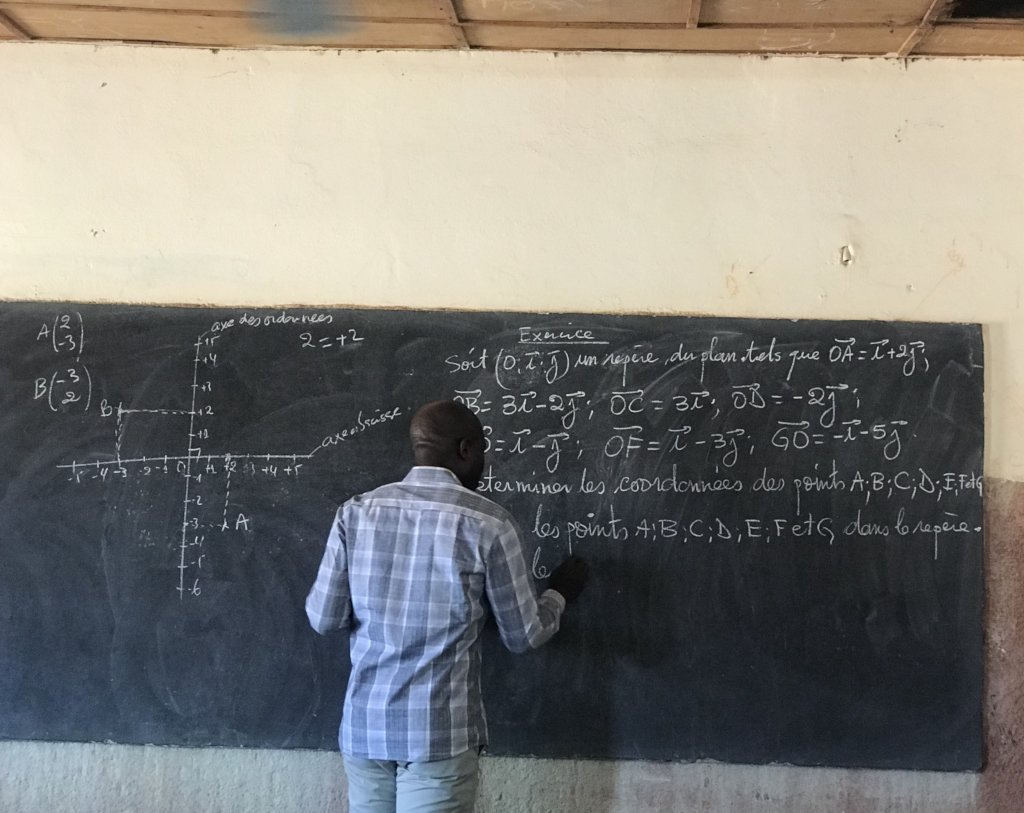 A(2 -3)
B(-3 2)
axe des ordonnées
2=+2
+5
+4
+3
B +2
+1
axe abscisse
-5 -4 -3 -2 -1 0 +1 +2 +3 +4 +5
-1
-2
-3 A
-4
-5
-6
Exercice
Soit (O; i⃗; j⃗) un repère du plan tels que OA⃗ = i⃗+2j⃗;
OB⃗ = 3i⃗-2j⃗; OC⃗ = 3i⃗; OD⃗ = -2j⃗;
= i⃗-j⃗; OF⃗ = i⃗-3j⃗; GO⃗ = -i⃗-5j⃗
eterminer les coordonnées des points A;B;C;D;E;F et G
les points A;B;C;D;E;F et G dans le repère.
le